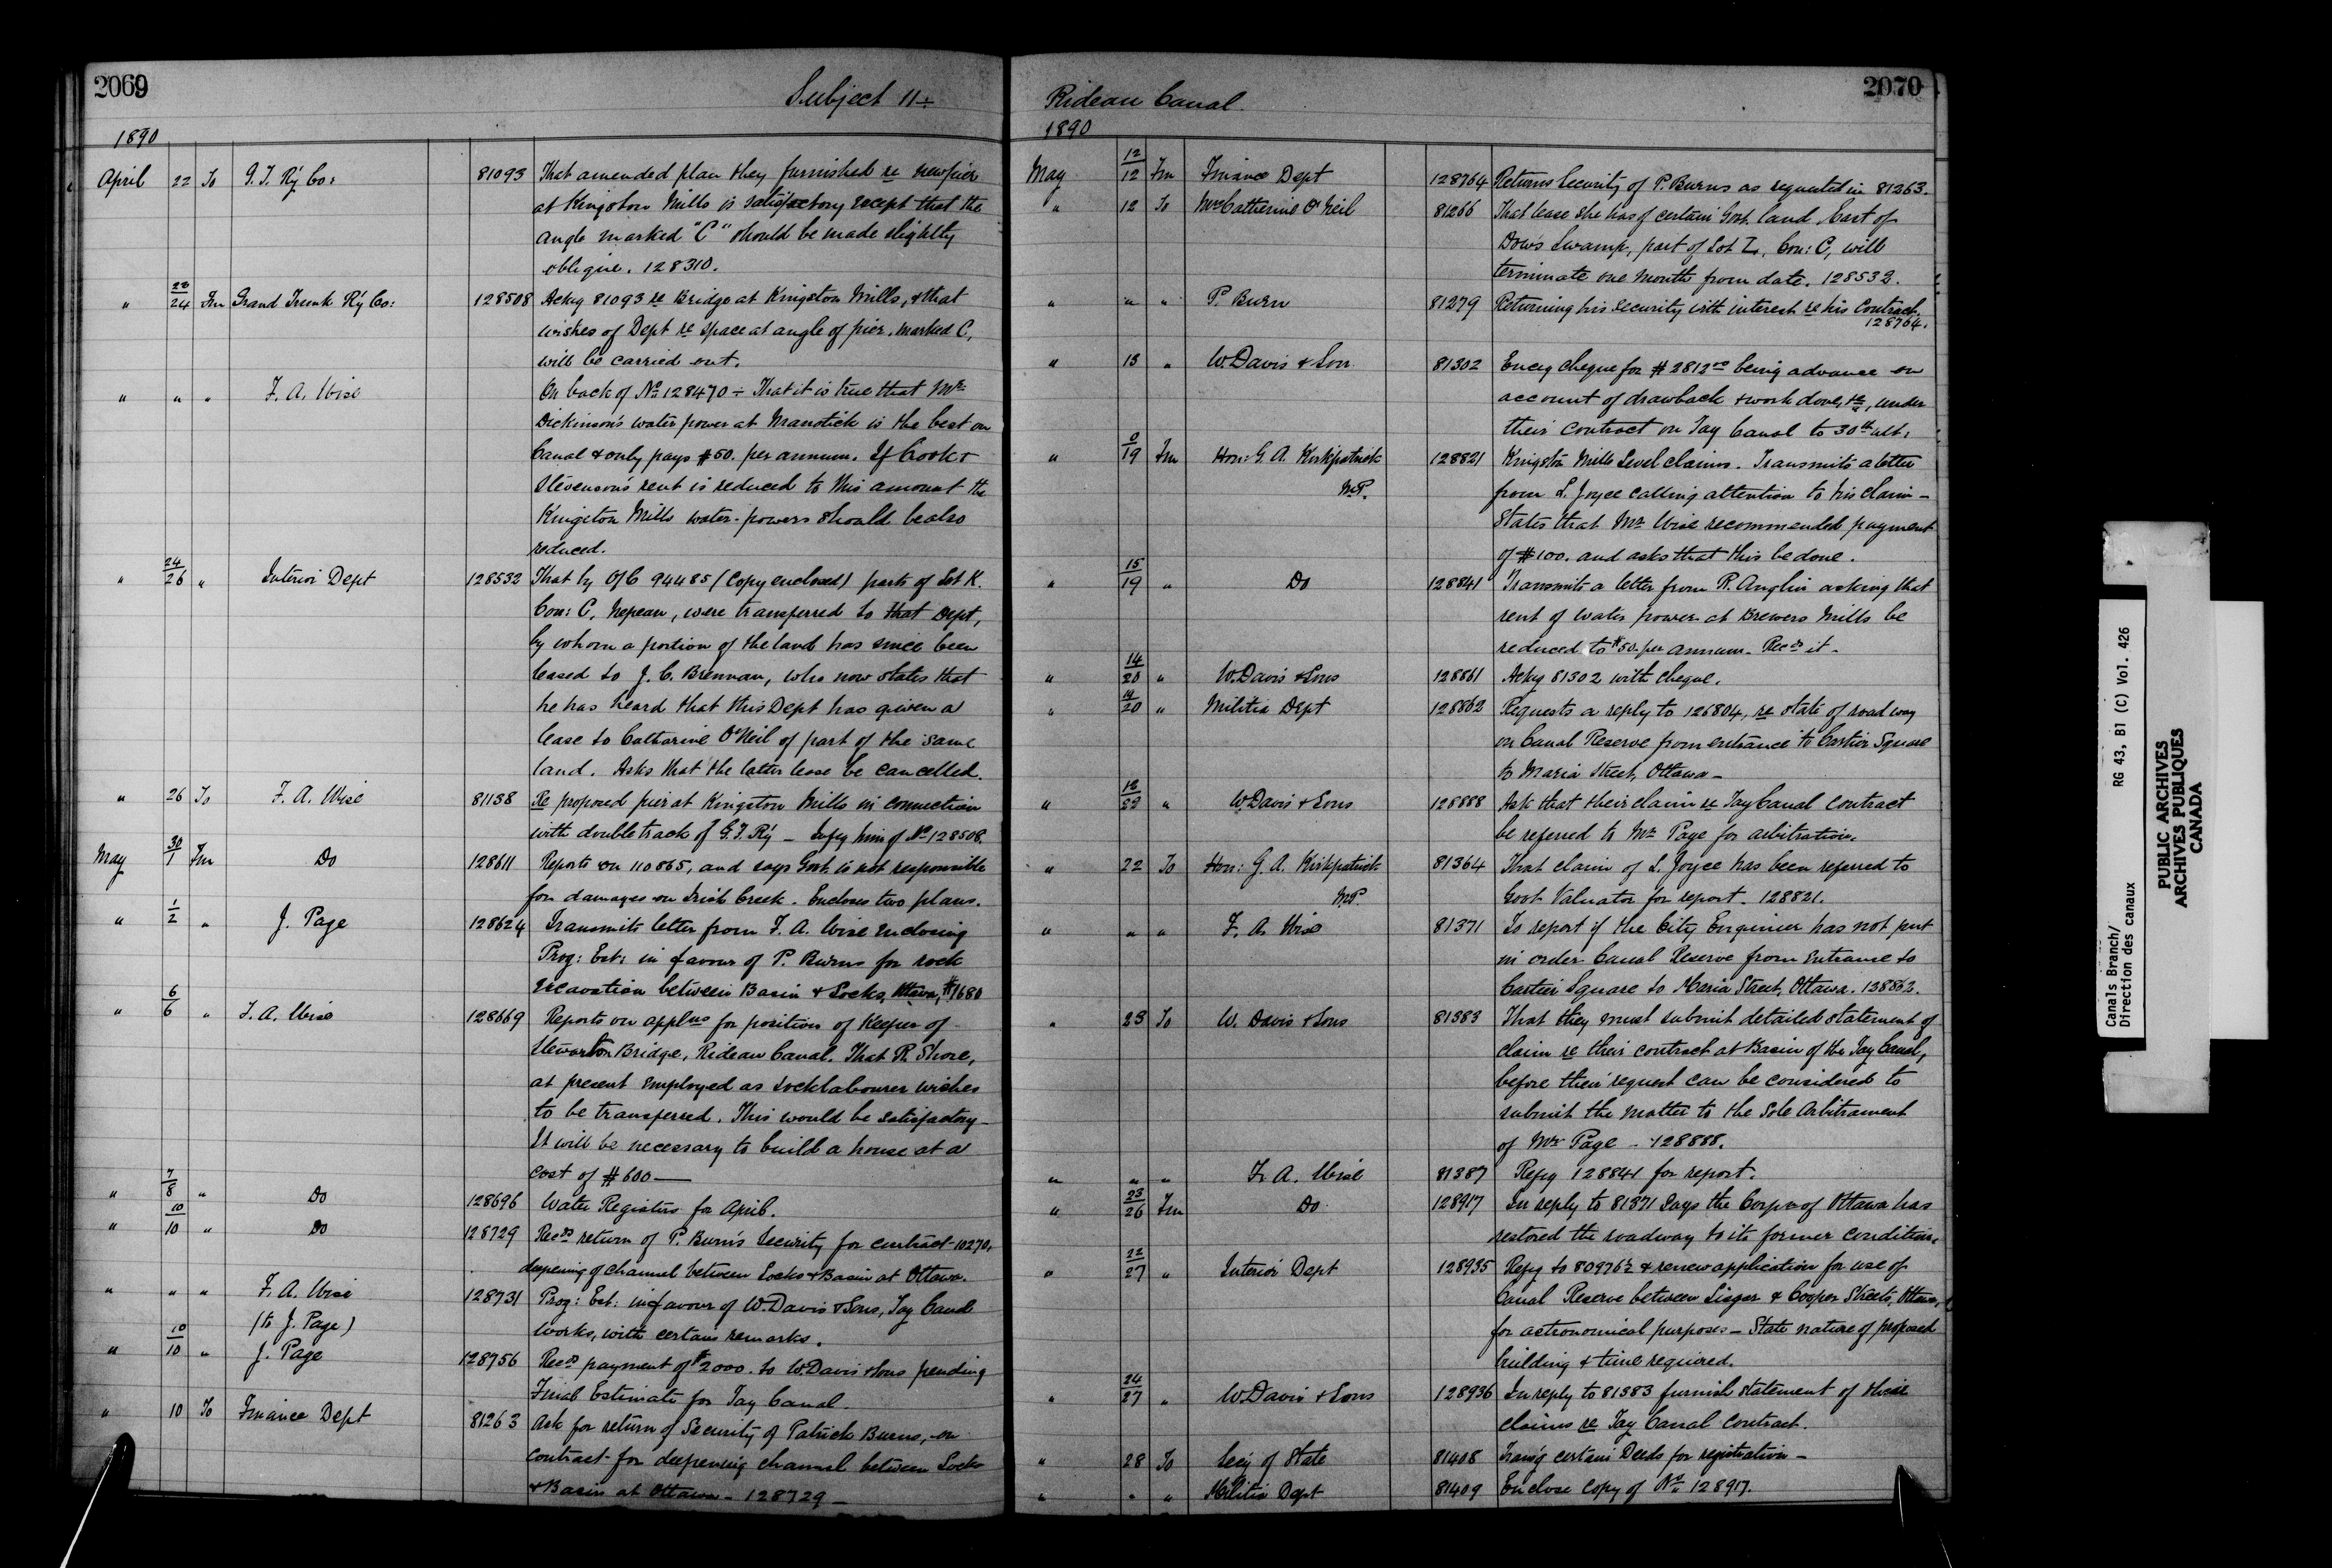 2069
Subject 11 ÷
1890
April 22 To G. T. Ry Co: 81093 That amended plan they furnished re new pier
at Kingston Mills is satisfactory except that the
angle marked "C" should be made slightly
oblique. 128310.
" 22/24 Fm Grand Trunk Ry Co: 128508 Ackg 81093 re Bridge at Kingston Mills, & that
wishes of Dept re space at angle of pier, marked C,
will be carried out.
" " " F. A. Wise On back of No 128470 ÷ That it is true that Mr
Dickinson's water power at Manotick is the best on
Canal & only pays $50. per annum. If Cook &
Stevenson's rent is reduced to this amount the
Kingston Mills water-powers should be also
reduced.
" 24/26 " Interior Dept 128532 That by O/C 94485 (Copy enclosed) parts of Lot K.
Con: C, Nepean, were transferred to that Dept,
by whom a portion of the land has since been
leased to J. C. Brennan, who now states that
he has heard that this Dept has given a
lease to Catharine O'Neil of part of the same
land. Asks that the latter lease be cancelled.
" 26 To F. A. Wise 81138 Re proposed pier at Kingston Mills in connection
with double track of G. T. Ry - Infg him of No 128508.
May 30/1 Fm Do 128611 Reports on 110865, and says Govt. is not responsible
for damages on Irish Creek. Encloses two plans.
" 1/2 " J. Page 128624 Transmits letter from F. A. Wise enclosing
Prog: Est: in favour of P. Burns for rock
excavation between Basin & Locks, Ottawa, $1680
" 6/6 " F. A. Wise 128669 Reports on applns for position of Keeper of
Stewarton Bridge, Rideau Canal. That R. Shore,
at present employed as locklabourer wishes
to be transferred. This would be satisfactory -
It will be necessary to build a house at a
cost of $600 —
" 7/8 " Do 128696 Water Registers for April.
" 10/10 " Do 128729 Recds return of P. Burn's Security for contract 10270,
deepening of channel between Locks & Basin at Ottawa.
" " " F. A. Wise 128731 Prog: Est: in favour of W. Davis & Sons, Tay Canal
(to J. Page) works, with certain remarks.
" 10/10 " J. Page 128756 Recds payment of $2000. to W. Davis & Sons pending
Final Estimate for Tay Canal.
" 10 To Finance Dept 81263 Ask for return of Security of Patrick Burns, on
contract for deepening channel between Locks
& Basin at Ottawa - 128729 -
2070
Rideau Canal.
1890
May 12/12 Fm Finance Dept 128764 Returns Security of P. Burns as requested in 81263.
" 12 To Mrs Catherine O'Neil 81266 That lease she has of certain Govt. land East of
Dow's Swamp, part of Lot L, Con: C, will
terminate one month from date. 128532.
" " " P. Burn 81279 Returning his security with interest re his Contract.
128764.
" 13 " W. Davis & Son 81302 Encg cheque for $2812 00 being advance on
account of drawback & work done, &c, under
their contract on Tay Canal to 30th ult:
" 9/19 Fm Hon: G. A. Kirkpatrick 128821 Kingston Mills Level claims. Transmits a letter
M.P. from L. Joyce calling attention to his claim -
States that Mr Wise recommended payment
of $100. and asks that this be done.
" 15/19 " Do 128841 Transmits a letter from R. Anglin asking that
rent of water power at Brewers Mills be
reduced to $50. per annum. Recds it.
" 14/20 " W. Davis & Sons 128861 Ackg 81302 with cheque.
" 19/20 " Militia Dept 128862 Requests a reply to 126804, re state of roadway
on Canal Reserve from entrance to Cartier Square
to Maria Street, Ottawa -
" 12/22 " W Davis & Sons 128888 Ask that their claim re Tay Canal contract
be referred to Mr Page for arbitration.
" 22 To Hon: G. A. Kirkpatrick 81364 That claim of L. Joyce has been referred to
M.P. Govt Valuator for report. 128821.
" " " F. A. Wise 81371 To report if the City Engineer has not put
in order Canal Reserve from entrance to
Cartier Square to Maria Street, Ottawa. 138862.
" 23 To W. Davis & Sons 81383 That they must submit detailed statement of
claim re their contract at Basin of the Tay Canal,
before their request can be considered to
submit the matter to the Sole Arbitrament
of Mr Page - 128888.
" " " F. A. Wise 81387 Refg 128841 for report.
" 23/26 Fm Do 128917 In reply to 81371 says the Corpn of Ottawa has
restored the roadway to its former condition.
" 22/27 " Interior Dept 128935 Refg to 80976½ & renew application for use of
Canal Reserve between Lisgar & Cooper Streets, Ottawa,
for astronomical purposes - State nature of proposed
building & time required.
" 24/27 " W. Davis & Sons 128936 In reply to 81383 furnish statement of their
claims re Tay Canal Contract.
" 28 To Secy of State 81408 Transg certain Deeds for registration -
" " " Militia Dept 81409 Enclose copy of No 128917.
Canals Branch/ RG 43, B1 (C) Vol. 426
Direction des canaux
PUBLIC ARCHIVES
ARCHIVES PUBLIQUES
CANADA